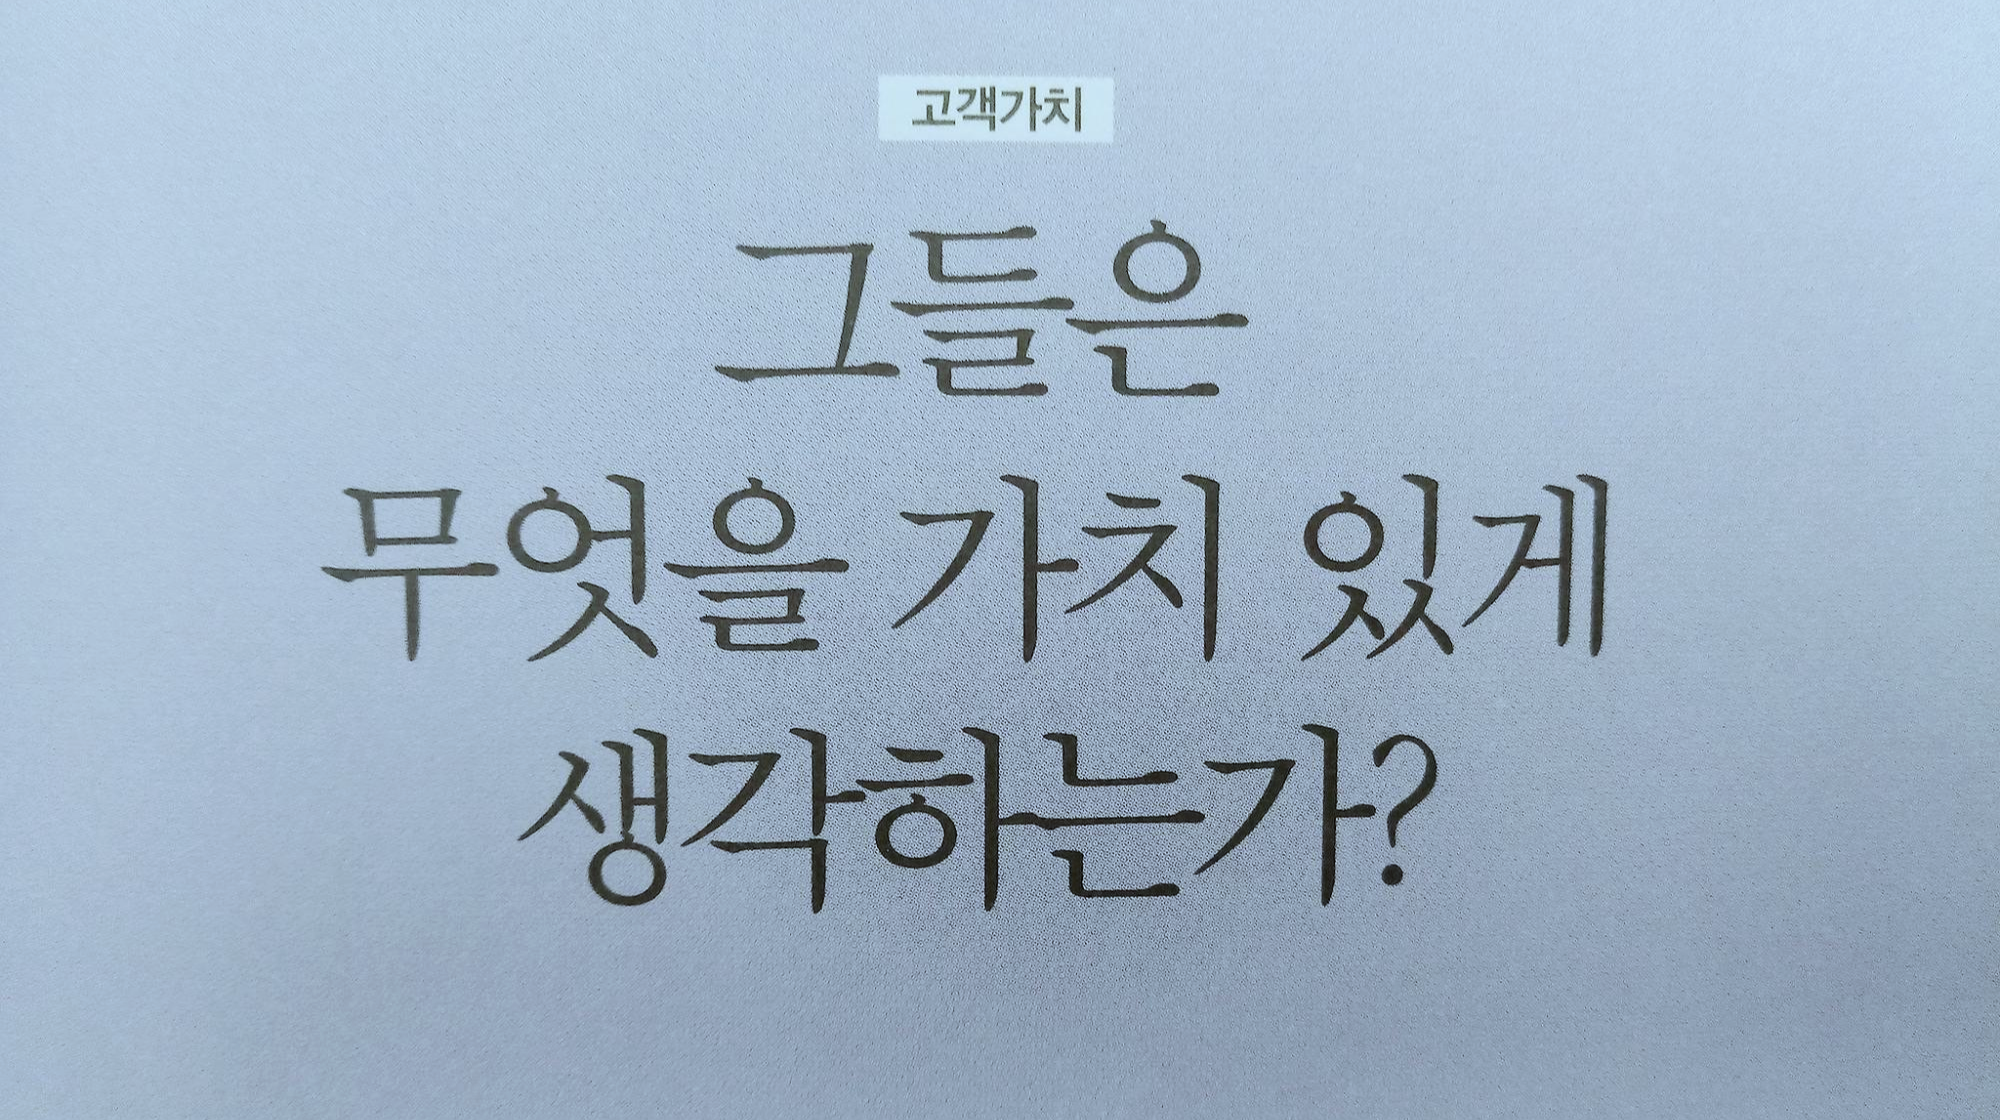 고객가치
그들은
무엇을 가치 있게
생각하는가?